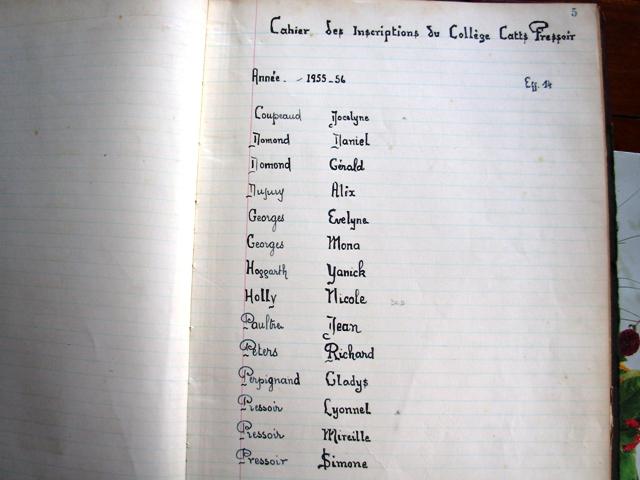 5
Cahier des Inscriptions du Collège Catts Pressoir
Année - 1955-56 Eff. 14
Coupeaud Jocelyne
Domond Daniel
Domond Gérald
Dupuy Alix
Georges Evelyne
Georges Mona
Hoggarth Yanick
Holly Nicole
Paultre Jean
Péters Richard
Perpignand Gladys
Pressoir Lyonnel
Pressoir Mireille
Pressoir Simone